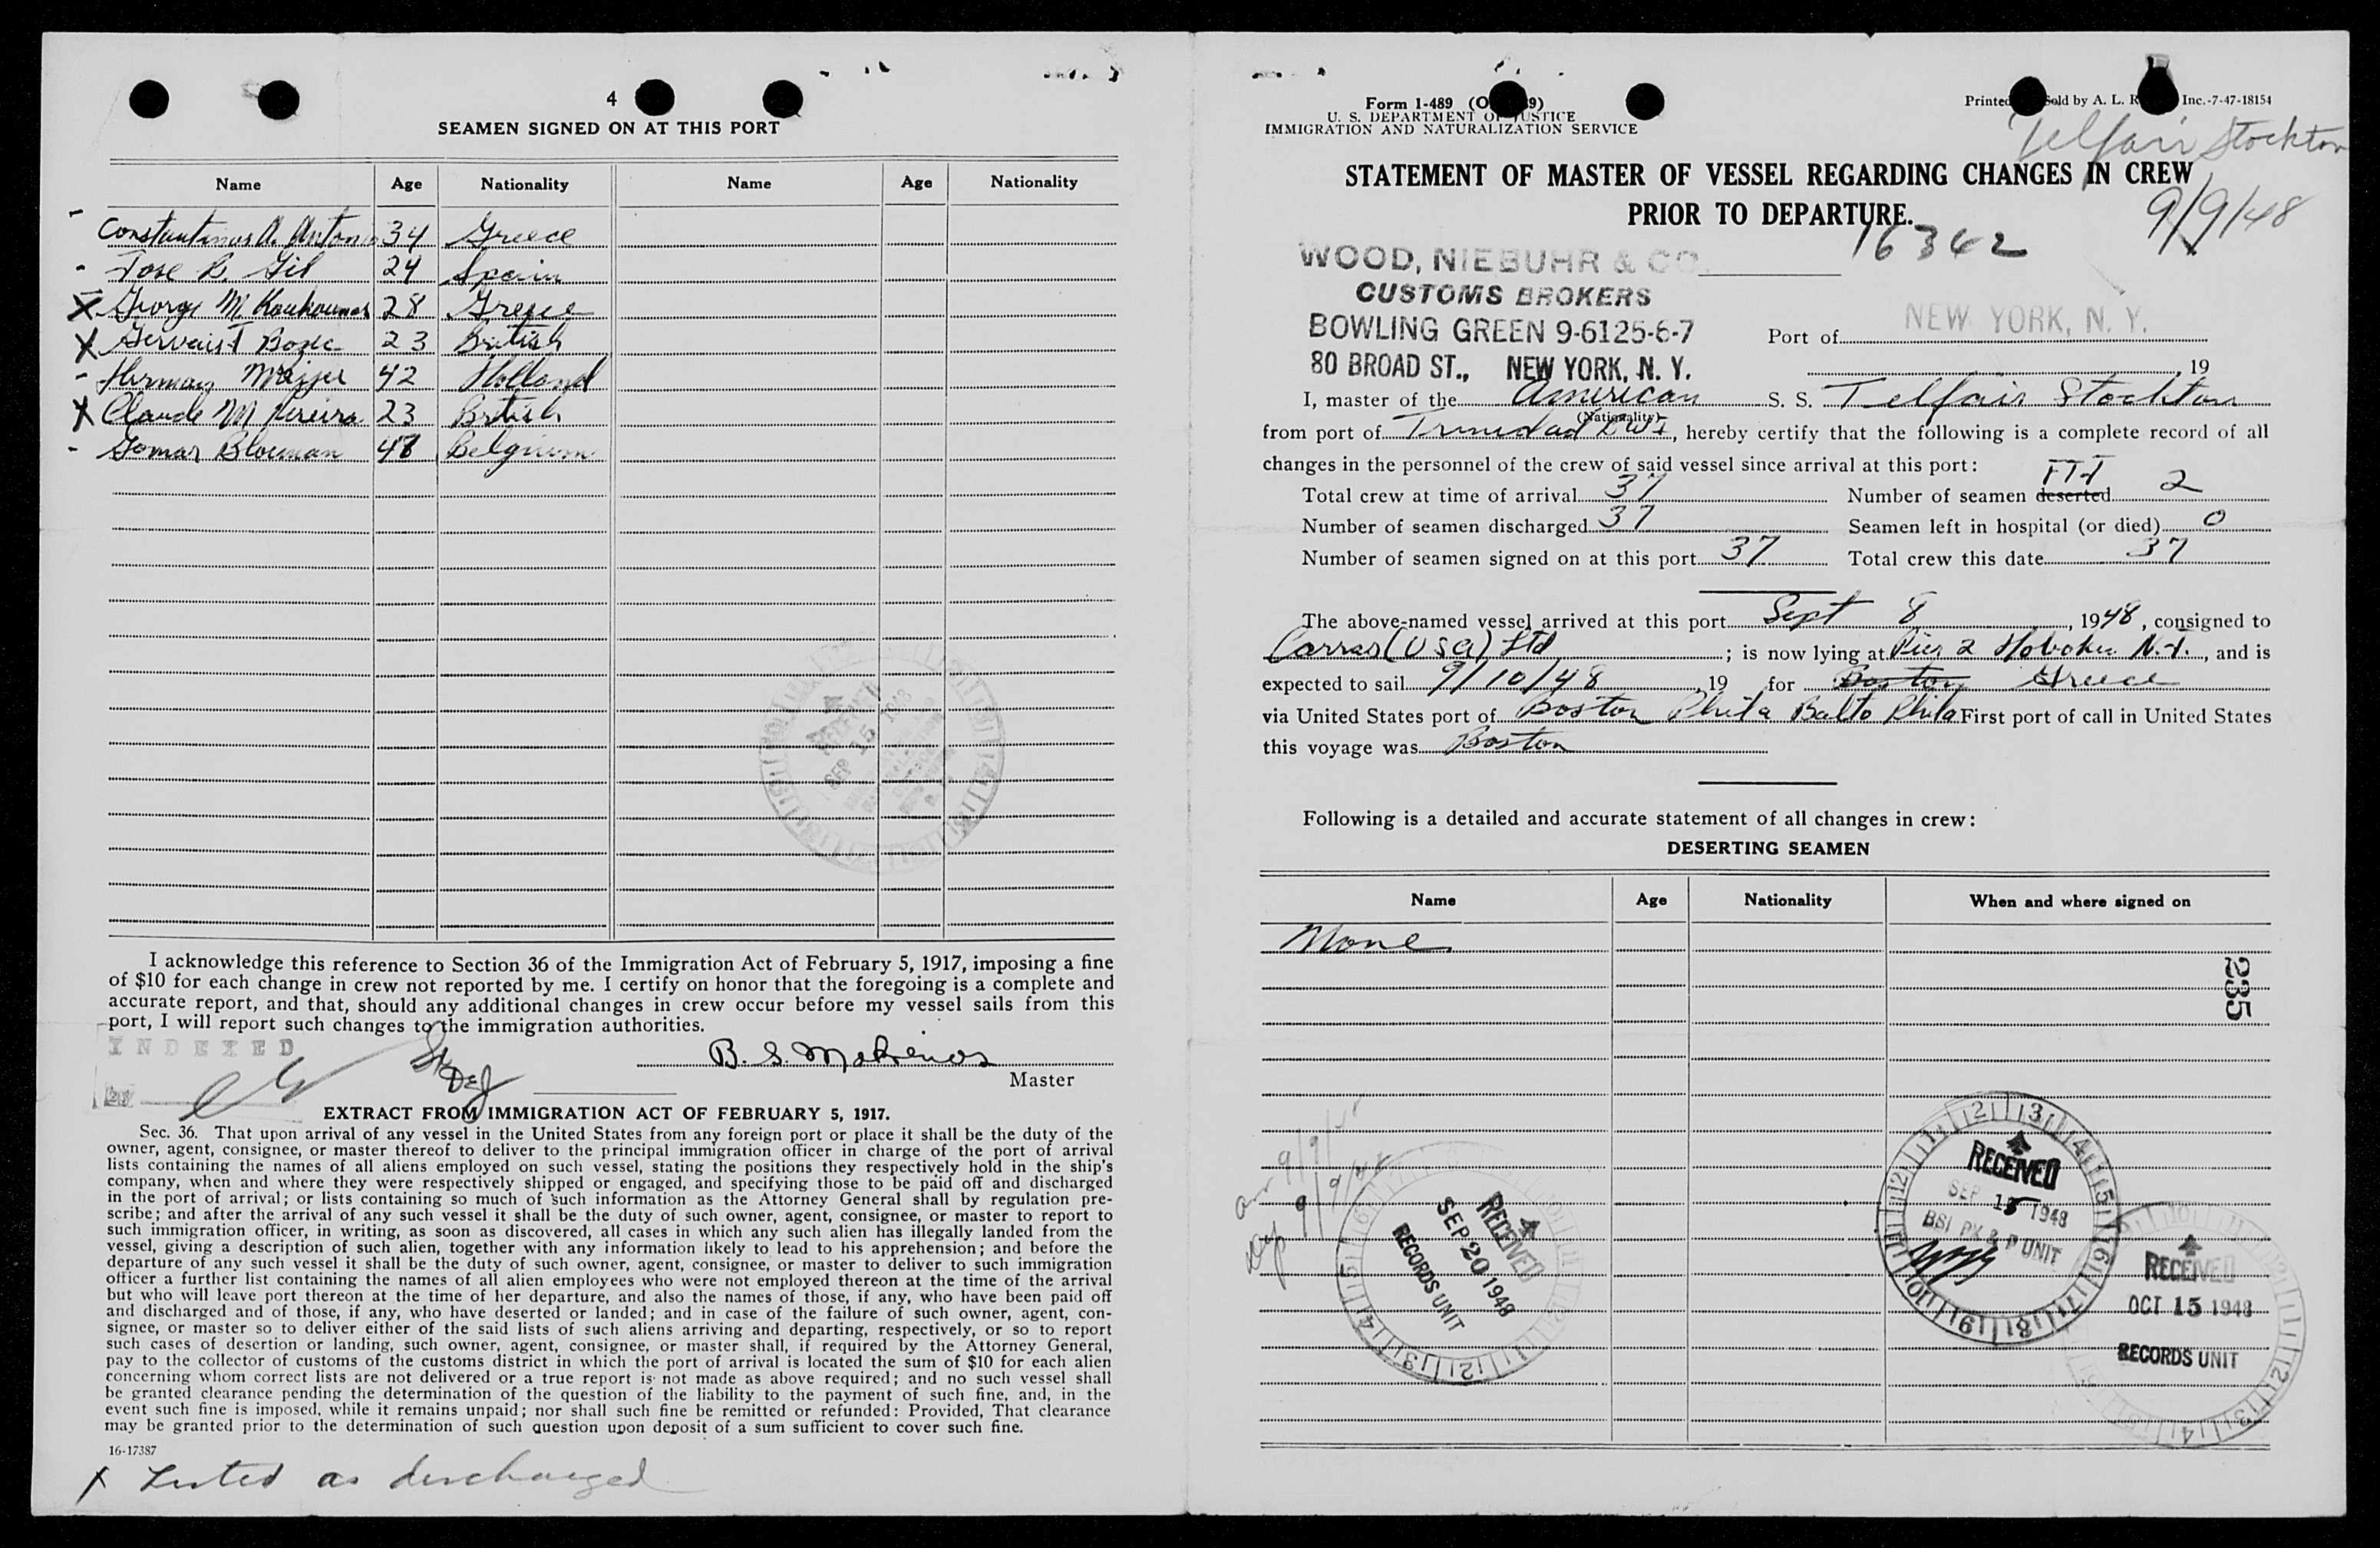 4
SEAMEN SIGNED ON AT THIS PORT
Name Age Nationality Name Age Nationality
Constantinos A. Antonio 34 Greece
- Jose R. Gil 24 Spain
X George M. Koukoumas 28 Greece
X Gervais T Boze 23 British
- Herman Meijer 42 Holland
X Claude M Pereira 23 British
- Gomar Bloeman 48 Belgium
I acknowledge this reference to Section 36 of the Immigration Act of February 5, 1917, imposing a fine
of $10 for each change in crew not reported by me. I certify on honor that the foregoing is a complete and
accurate report, and that, should any additional changes in crew occur before my vessel sails from this
port, I will report such changes to the immigration authorities.
INDEXED
B. S. Mokrenos
Master
EXTRACT FROM IMMIGRATION ACT OF FEBRUARY 5, 1917.
Sec. 36. That upon arrival of any vessel in the United States from any foreign port or place it shall be the duty of the
owner, agent, consignee, or master thereof to deliver to the principal immigration officer in charge of the port of arrival
lists containing the names of all aliens employed on such vessel, stating the positions they respectively hold in the ship's
company, when and where they were respectively shipped or engaged, and specifying those to be paid off and discharged
in the port of arrival; or lists containing so much of such information as the Attorney General shall by regulation pre-
scribe; and after the arrival of any such vessel it shall be the duty of such owner, agent, consignee, or master to report to
such immigration officer, in writing, as soon as discovered, all cases in which any such alien has illegally landed from the
vessel, giving a description of such alien, together with any information likely to lead to his apprehension; and before the
departure of any such vessel it shall be the duty of such owner, agent, consignee, or master to deliver to such immigration
officer a further list containing the names of all alien employees who were not employed thereon at the time of the arrival
but who will leave port thereon at the time of her departure, and also the names of those, if any, who have been paid off
and discharged and of those, if any, who have deserted or landed; and in case of the failure of such owner, agent, con-
signee, or master so to deliver either of the said lists of such aliens arriving and departing, respectively, or so to report
such cases of desertion or landing, such owner, agent, consignee, or master shall, if required by the Attorney General,
pay to the collector of customs of the customs district in which the port of arrival is located the sum of $10 for each alien
concerning whom correct lists are not delivered or a true report is not made as above required; and no such vessel shall
be granted clearance pending the determination of the question of the liability to the payment of such fine, and, in the
event such fine is imposed, while it remains unpaid; nor shall such fine be remitted or refunded: Provided, That clearance
may be granted prior to the determination of such question upon deposit of a sum sufficient to cover such fine.
16-17387
X Listed as discharged
Form 1-489
U. S. DEPARTMENT OF JUSTICE
IMMIGRATION AND NATURALIZATION SERVICE
Printed Sold by A. L. Inc.-7-47-18154
Telfair Stockton
STATEMENT OF MASTER OF VESSEL REGARDING CHANGES IN CREW
PRIOR TO DEPARTURE.
9/9/48
16342
WOOD, NIEBUHR & CO.
CUSTOMS BROKERS
BOWLING GREEN 9-6125-6-7
80 BROAD ST., NEW YORK, N. Y.
Port of NEW YORK, N. Y.
, 19
I, master of the American S. S. Telfair Stockton
(Nationality)
from port of Trinidad BWI, hereby certify that the following is a complete record of all
changes in the personnel of the crew of said vessel since arrival at this port:
Total crew at time of arrival 37 Number of seamen deserted FTJ 2
Number of seamen discharged 37 Seamen left in hospital (or died) 0
Number of seamen signed on at this port 37 Total crew this date 37
The above-named vessel arrived at this port Sept 8, 1948, consigned to
Carras (USA) Ltd; is now lying at Pier 2 Hoboken N.J., and is
expected to sail 9/10/48, 19 for Boston Greece
via United States port of Boston Phila Balto Phila First port of call in United States
this voyage was Boston
Following is a detailed and accurate statement of all changes in crew:
DESERTING SEAMEN
Name Age Nationality When and where signed on
None
235
arr 9/9/48
dep 9/9/48
RECEIVED
SEP 20 1948
RECORDS UNIT
RECEIVED
SEP 15 1948
BSI PX & P UNIT
RECEIVED
OCT 15 1948
RECORDS UNIT
RECEIVED
SEP 15 1948